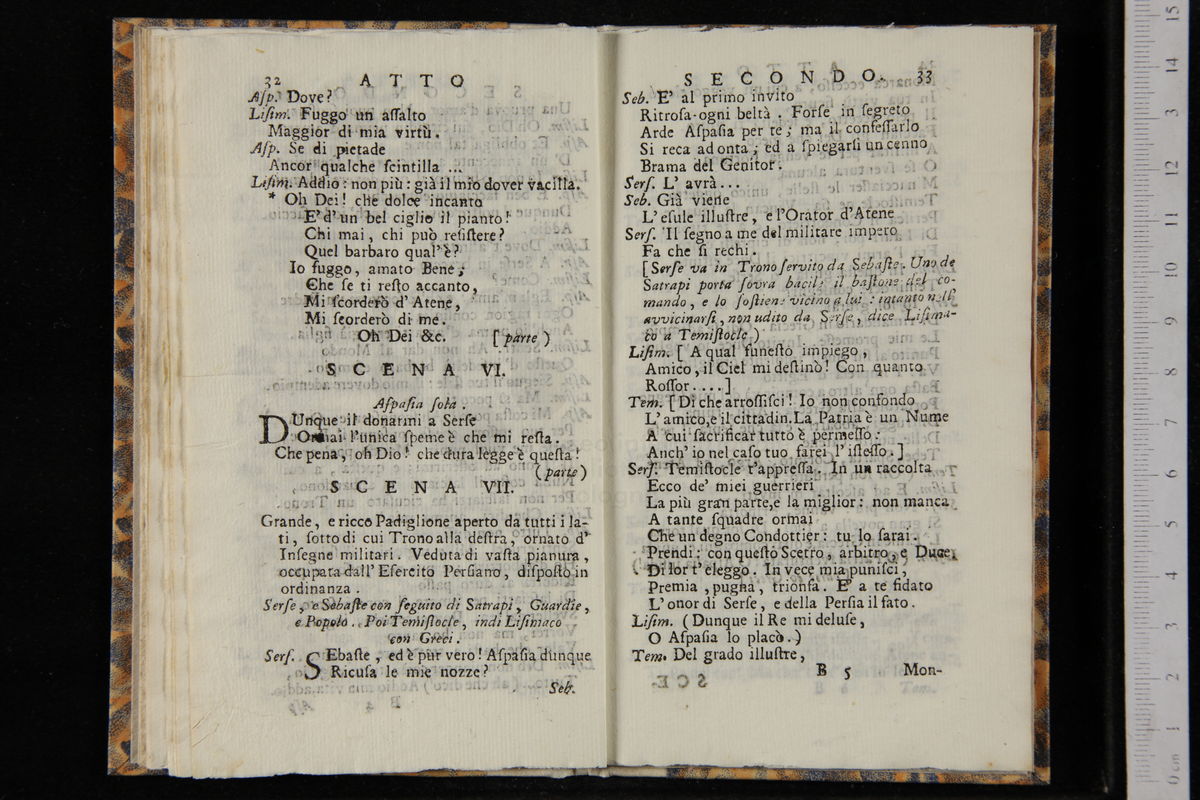 32 ATTO
Aſp. Dove?
Liſim. Fuggo un aſſalto
Maggior di mia virtù.
Aſp. Se di pietade
Ancor qualche ſcintilla ...
Liſim. Addio: non più: già il mio dover vacilla.
* Oh Dei! che dolce incanto
E' d' un bel ciglio il pianto!
Chi mai, chi può reſiſtere?
Quel barbaro qual' è?
Io fuggo, amato Bene;
Che ſe ti reſto accanto,
Mi ſcorderò d' Atene,
Mi ſcorderò di me.
Oh Dei &c. [parte)
SCENA VI.
Aſpaſia ſola.
DUnque il donarmi a Serſe
Ormai l'unica ſpeme è che mi reſta.
Che pena, oh Dio! che dura legge è queſta!
(parte)
SCENA VII.
Grande, e ricco Padiglione aperto da tutti i la-
ti, ſotto di cui Trono alla deſtra, ornato d'
Inſegne militari. Veduta di vaſta pianura,
occupata dall' Eſercito Perſiano, diſpoſto in
ordinanza.
Serſe, e Sebaſte con ſeguito di Satrapi, Guardie,
e Popolo. Poi Temiſtocle, indi Liſimaco
con Greci.
Serſ. SEbaſte, ed è pur vero! Aſpaſia dunque
Ricuſa le mie nozze?
Seb.
SECONDO. 33
Seb. E' al primo invito
Ritroſa ogni beltà. Forſe in ſegreto
Arde Aſpaſia per te; ma il confeſſarlo
Si reca ad onta; ed a ſpiegarſi un cenno
Brama del Genitor.
Serſ. L' avrà...
Seb. Già viene
L' eſule illuſtre, e l'Orator d'Atene
Serſ. Il ſegno a me del militare impero
Fa che ſi rechi.
[Serſe va in Trono ſervito da Sebaſte. Uno de
Satrapi porta ſovra bacile il baſtone del co-
mando, e lo ſoſtiene vicino a lui: intanto nell'
avvicinarſi, non udito da Serſe, dice Liſima-
co a Temiſtocle)
Liſim. [A qual funeſto impiego,
Amico, il Ciel mi deſtinò! Con quanto
Roſſor....]
Tem. [Di che arroſſiſci! Io non confondo
L' amico, e il cittadin. La Patria è un Nume
A cui ſacrificar tutto è permeſſo:
Anch' io nel caſo tuo farei l' iſteſſo.]
Serſ. Temiſtocle t'appreſſa. In un raccolta
Ecco de' miei guerrieri
La più gran parte, e la miglior: non manca
A tante ſquadre ormai
Che un degno Condottier: tu lo ſarai.
Prendi: con queſto Scetro, arbitro, e Duce
Di lor t' eleggo. In vece mia puniſci,
Premia, pugna, trionfa. E' a te fidato
L' onor di Serſe, e della Perſia il fato.
Liſim. (Dunque il Re mi deluſe,
O Aſpaſia lo placò.)
Tem. Del grado illuſtre,
B 5 Mon-